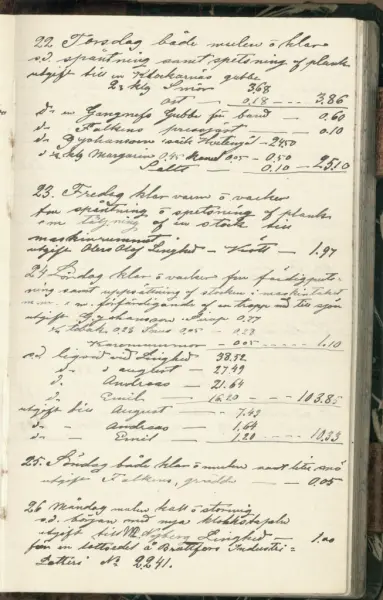 22 Torsdag både mulen ö klar
o.d. spåntning samt spetsning af plank
utgift till en Klockarnäs gubbe
2½ klg Smör 3.68
ost — 0.18 --- 3.86
do en Gangnefs Gubbe för band — 0.60
do Falkens — 0.10
do Johansson sack - 24.50
d ½ klg Margarin 0.45 0.05 - 0.50
Salt — 0.10 — 25.10
23. Fredag klar varm ö vacker
fm spåntning ö spetsning af plank
em af en stock till
maskinrummet
utgift Olars Olof Linghed — Kött — 1.97
24 Lördag klar ö vacker fm
ning samt uppsättning af stocken i maskinhuset
m.m. e.m. förfärdigande af en trapp ned till sjön
utgift G. Johansson Sirap 0.77
¼ tobak 0.23 Snus 0.05 - 0.28
— 0.05 --- 1.10
o.d. liqvid vid Linghed — 38.32
do d august — 27.49
do Andreas — 21.64
do Emil — 16.20 --- 103.85
utgift till August — 7.49
do - Andreas — 1.64
do - Emil — 1.20 --- 10.33
25. Söndag både klar ö mulen samt lite snö
utgift Falkens, — 0.05
26 Måndag mulen kall ö stormig
o.d. början med nya klockstapeln
utgift till Linghed — 1.00
för en lottsedel å Brattfors Industri =
Lotteri No 2241.